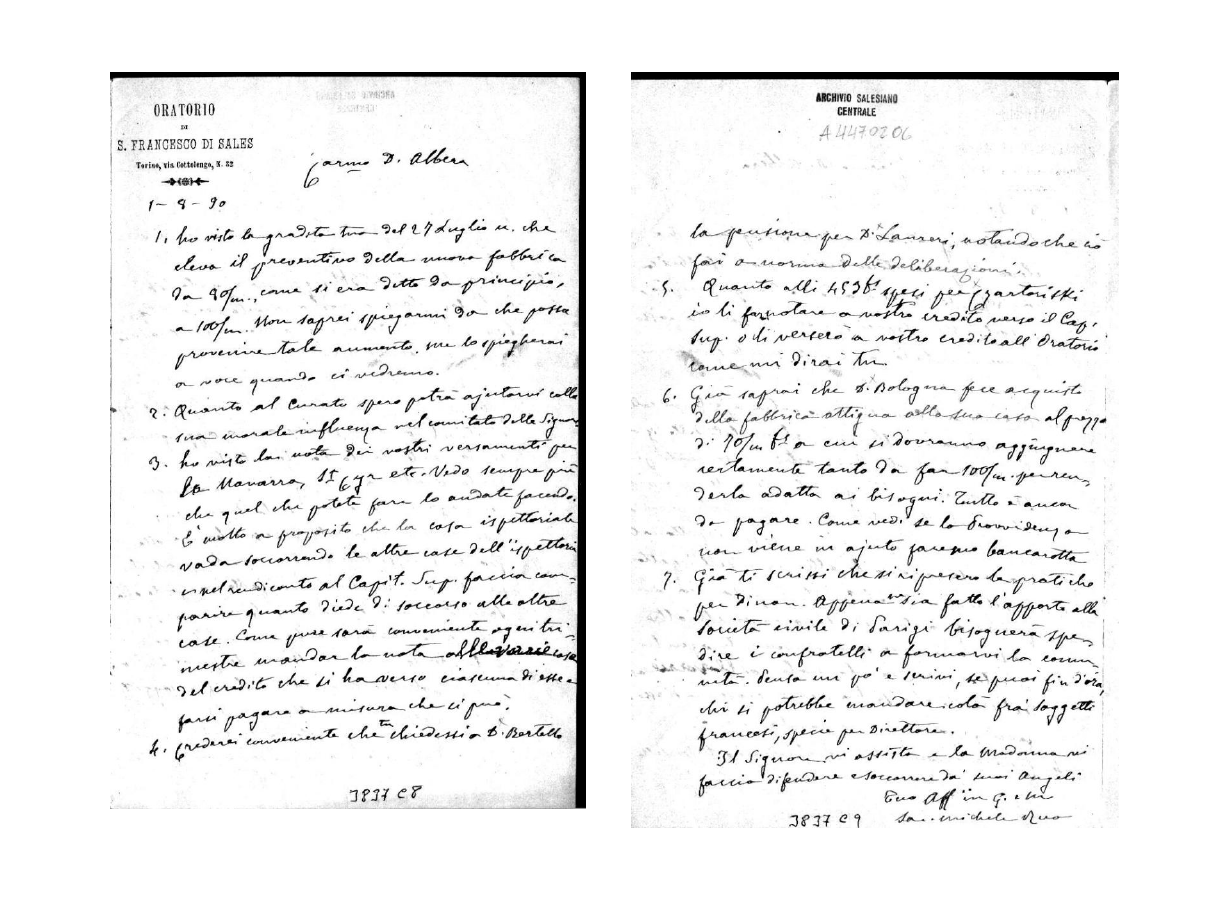 ORATORIO
DI
S. FRANCESCO DI SALES
Torino, via Cottolengo, N. 32
Carmo D. Albera
1-8-90
1. ho visto la gradita tua del 27 Luglio u. che
eleva il preventivo della nuova fabbrica
da 80/m., come si era detto da principio,
a 100/m. Non saprei spiegarmi da che possa
provenire tale aumento. me lo spiegherai
a voce quando ci vedremo.
2. Quanto al Curato spero potrà ajutarvi colla
sua morale influenza nel comitato delle Signore
3. ho visto la nota dei vostri versamenti per
La Navarra, St Cyr etc. Vedo sempre più
che quel che potete fare lo andate facendo.
È molto a proposito che la casa ispettoriale
vada soccorrendo le altre case dell'ispettoria
e nel rendiconto al Capit. Sup. faccia com-
parire quanto diede di soccorso alle altre
case. Come pure sarà conveniente ogni tri-
mestre mandar la nota alle varie case
del credito che si ha verso ciascuna di esse e
farsi pagare a misura che si può.
4. Crederei conveniente che tu chiedessi a D. Bertello
3837 C8
ARCHIVIO SALESIANO
CENTRALE
A4470206
la pensione per D. Laureri, notando che ciò
fai a norma delle deliberazioni.
5. Quanto alli 453 fs spesi per Czartoriski
io li fo notare a vostro credito verso il Cap.
Sup. o li verserò a vostro credito all'Oratorio
come mi dirai tu.
6. Già saprai che D. Bologna fece acquisto
della fabbrica attigua alla sua casa al prezzo
di 70/m fs a cui si dovranno aggiungere
certamente tanto da far 100/m. per ren-
derla adatta ai bisogni. Tutto è ancor
da pagare. Come vedi se la Provvidenza
non viene in ajuto faremo bancarotta
7. Già ti scrissi che si ripresero le pratiche
per Dinan. Appena si sia fatto l'apporto alla
società civile di Parigi bisognerà spe-
dire i confratelli a formarvi la comu-
nità. Pensa un pò e scrivi, se puoi fin d'ora,
chi si potrebbe mandare colà fra' soggetti
francesi, specie per Direttore.
Il Signore vi assista e la Madonna vi
faccia difendere e soccorrere da' suoi Angeli
Tuo Aff in G. e M
Sac. Michele Rua
3837 C9